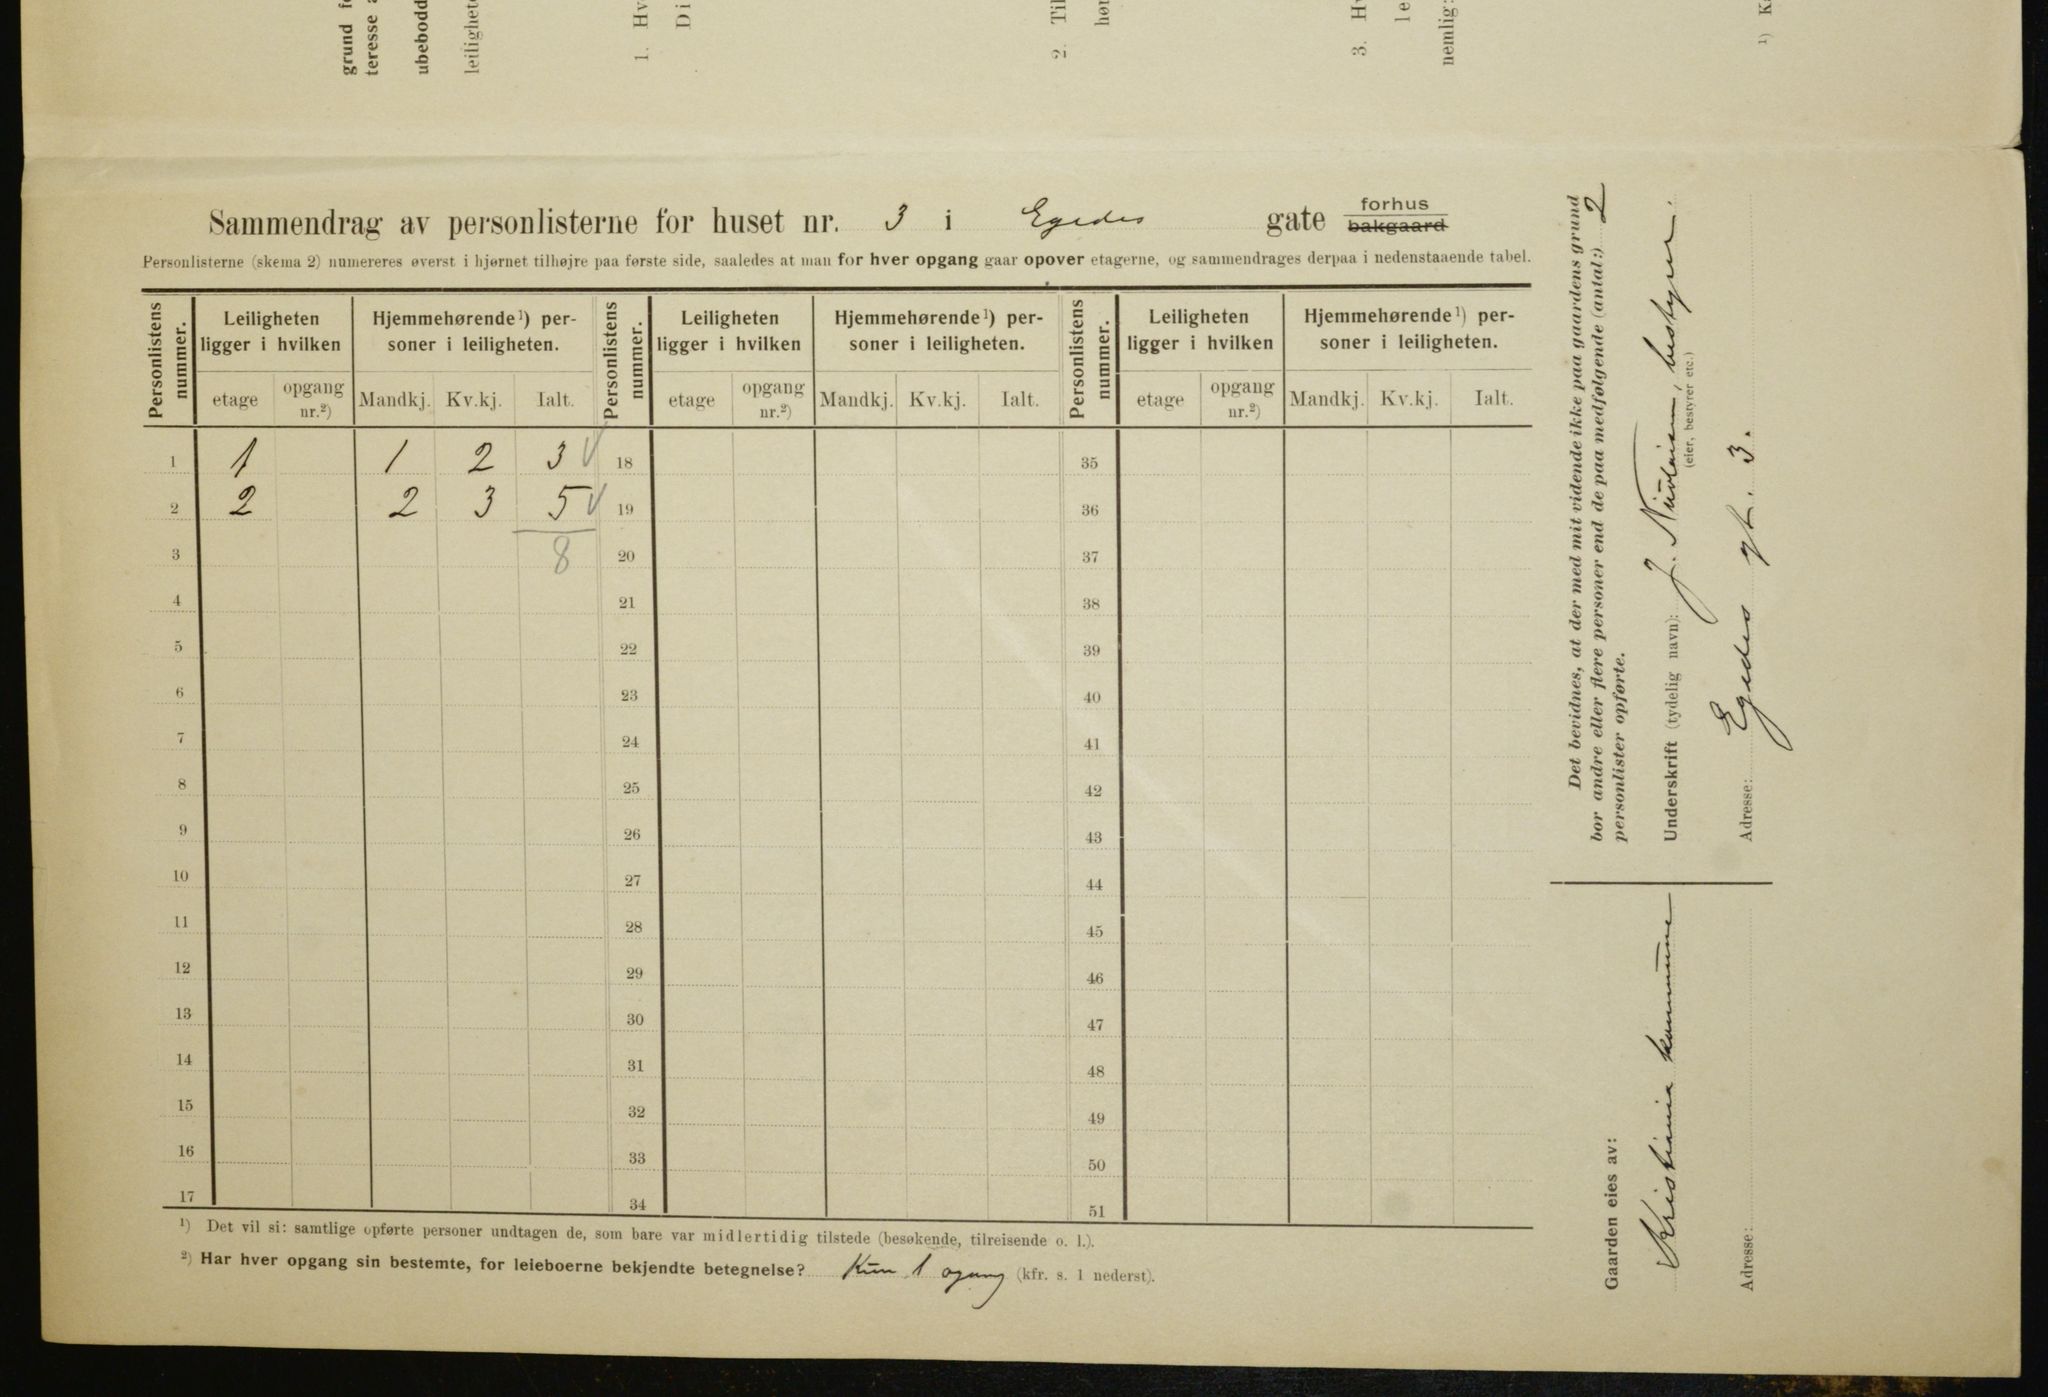 grund
teresse
ubebodd
leilighet
1. Hv
Di
2. Til
hør
3. Hv
le
nemlig:
¹) Ka
Sammendrag av personlisterne for huset nr. 3 i Egedes gate forhus
bakgaard
Personlisterne (skema 2) numereres øverst i hjørnet tilhøjre paa første side, saaledes at man for hver opgang gaar opover etagerne, og sammendrages derpaa i nedenstaaende tabel.
Personlistens nummer. Leiligheten ligger i hvilken Hjemmehørende¹) personer i leiligheten. Personlistens nummer. Leiligheten ligger i hvilken Hjemmehørende¹) personer i leiligheten. Personlistens nummer. Leiligheten ligger i hvilken Hjemmehørende¹) personer i leiligheten.
etage opgang nr.²) Mandkj. Kv.kj. Ialt. etage opgang nr.²) Mandkj. Kv.kj. Ialt. etage opgang nr.²) Mandkj. Kv.kj. Ialt.
1 1 1 2 3 18 35
2 2 2 3 5 19 36
3 8 20 37
4 21 38
5 22 39
6 23 40
7 24 41
8 25 42
9 26 43
10 27 44
11 28 45
12 29 46
13 30 47
14 31 48
15 32 49
16 33 50
17 34 51
¹) Det vil si: samtlige opførte personer undtagen de, som bare var midlertidig tilstede (besøkende, tilreisende o. l.).
²) Har hver opgang sin bestemte, for leieboerne bekjendte betegnelse? Kun 1 ogang (kfr. s. 1 nederst).
Det bevidnes, at der med mit vidende ikke paa gaardens grund
bor andre eller flere personer end de paa medfølgende (antal:) 2
personlister opførte.
Underskrift (tydelig navn): J. bestyrer.
(eier, bestyrer etc.)
Adresse: Egedes gt. 3.
Gaarden eies av:
Kristiania kommune
Adresse: